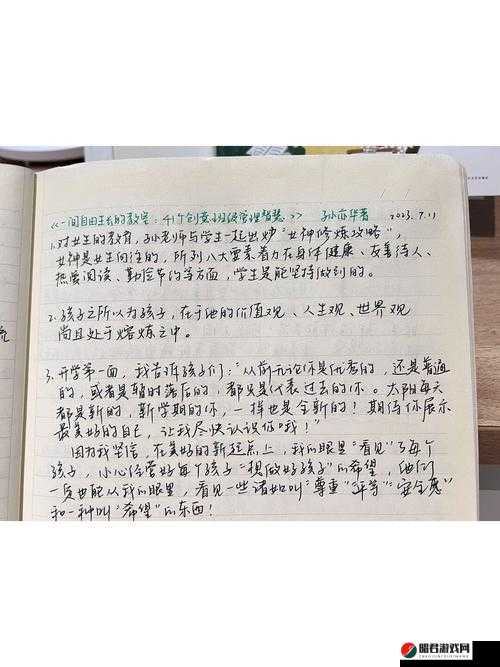 《一间自由生长的教室：41个创意班级管理智慧》 孙亦华著 2023.7.11
1.对女生的教育，孙老师与学生一起出炒"女神修炼攻略"，
女神是女生向往的，所列八大要素着力在身体健康、友善待人、
热爱阅读、勤俭节约等方面，学生是能坚持做到的。
2.孩子之所以为孩子，在于他的价值观、人生观、世界观
尚且处于熔炼之中。
3.开学第一面，我告诉孩子们："从前无论你是优秀的，还是普通
的，或者是暂时落后的，都只是代表过去的你。太阳每天
都是新的，新学期的你，一样也是全新的！期待你展示
最美好的自己，让我尽快认识你哦！"
因为我坚信，在美好的新起点上，我的眼里"看见"了每个
孩子，小心经营好每个孩子"想做好孩子"的希望，他们
一定也能从我的眼里，看见一些诸如叫"尊重""平等""安全感"
和一种叫"希望"的东西！
昭君游戏网